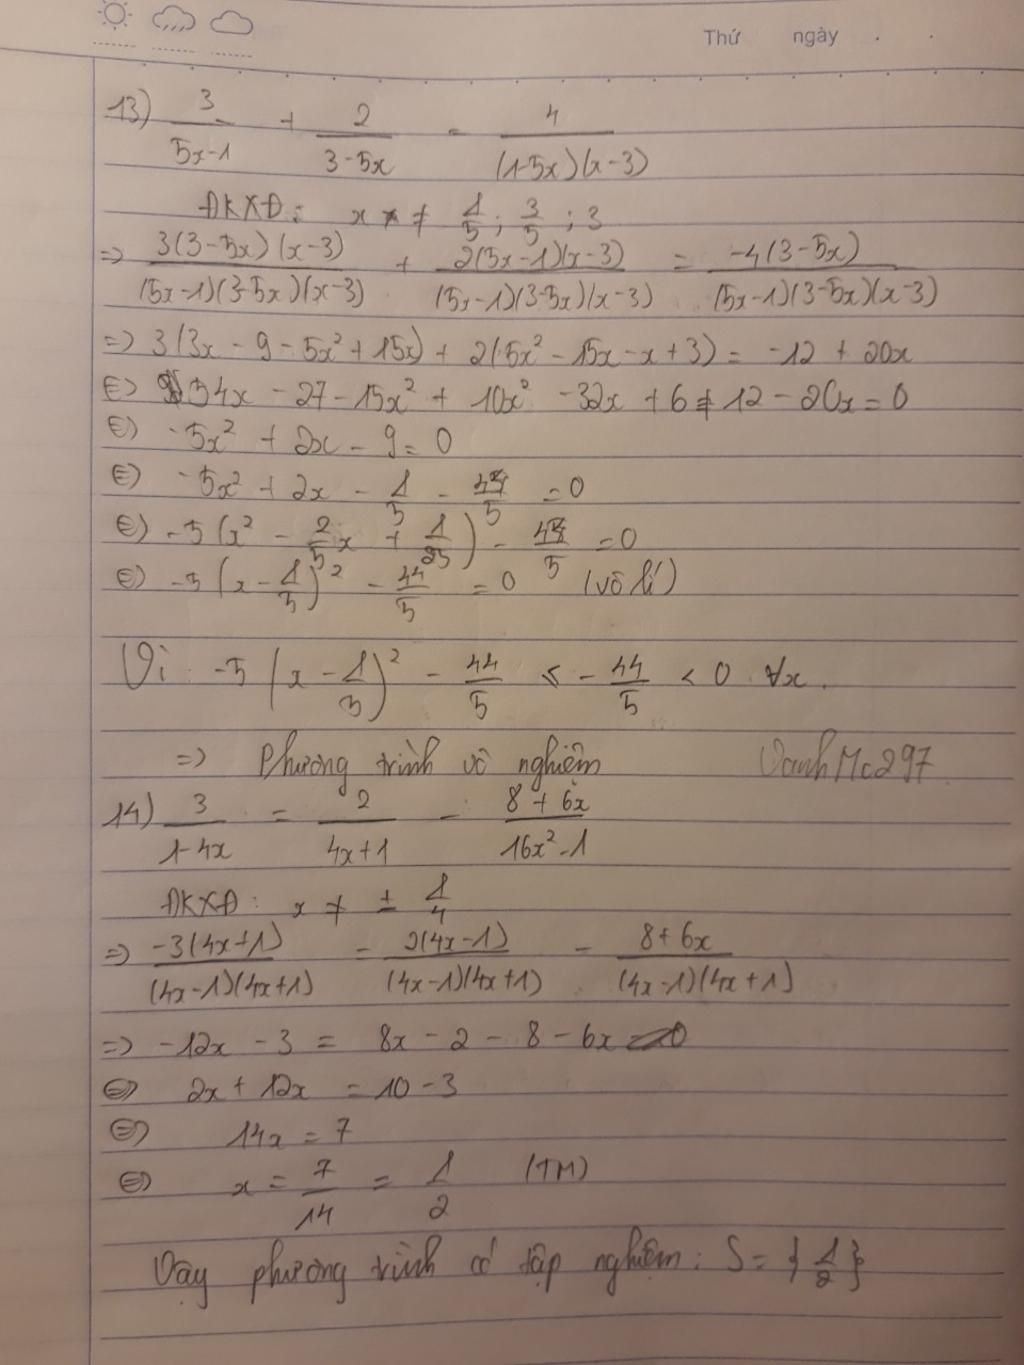 Thứ ngày . .
13) 3/(5x-1) + 2/(3-5x) = 4/((1-5x)(x-3))
ĐKXĐ: x ≠ 1/5; 3/5; 3
=> 3(3-5x)(x-3)/((5x-1)(3-5x)(x-3)) + 2(5x-1)(x-3)/((5x-1)(3-5x)(x-3)) = -4(3-5x)/((5x-1)(3-5x)(x-3))
=> 3(3x - 9 - 5x² + 15x) + 2(5x² - 15x - x + 3) = -12 + 20x
<=> 54x - 27 - 15x² + 10x² - 32x + 6 + 12 - 20x = 0
<=> -5x² + 2x - 9 = 0
<=> -5x² + 2x - 1/5 - 44/5 = 0
<=> -5(x² - 2/5 x + 1/25) - 44/5 = 0
<=> -5(x - 1/5)² - 44/5 = 0 (vô lí)
Vì: -5(x - 1/5)² - 44/5 ≤ - 44/5 < 0 ∀x.
=> Phương trình vô nghiệm VanhMc297
14) 3/(1-4x) = 2/(4x+1) - (8+6x)/(16x²-1)
ĐKXĐ: x ≠ ± 1/4
=> -3(4x+1)/((4x-1)(4x+1)) = 2(4x-1)/((4x-1)(4x+1)) - (8+6x)/((4x-1)(4x+1))
=> -12x - 3 = 8x - 2 - 8 - 6x
<=> 2x + 12x = 10 - 3
<=> 14x = 7
<=> x = 7/14 = 1/2 (TM)
Vậy phương trình có tập nghiệm: S = {1/2}